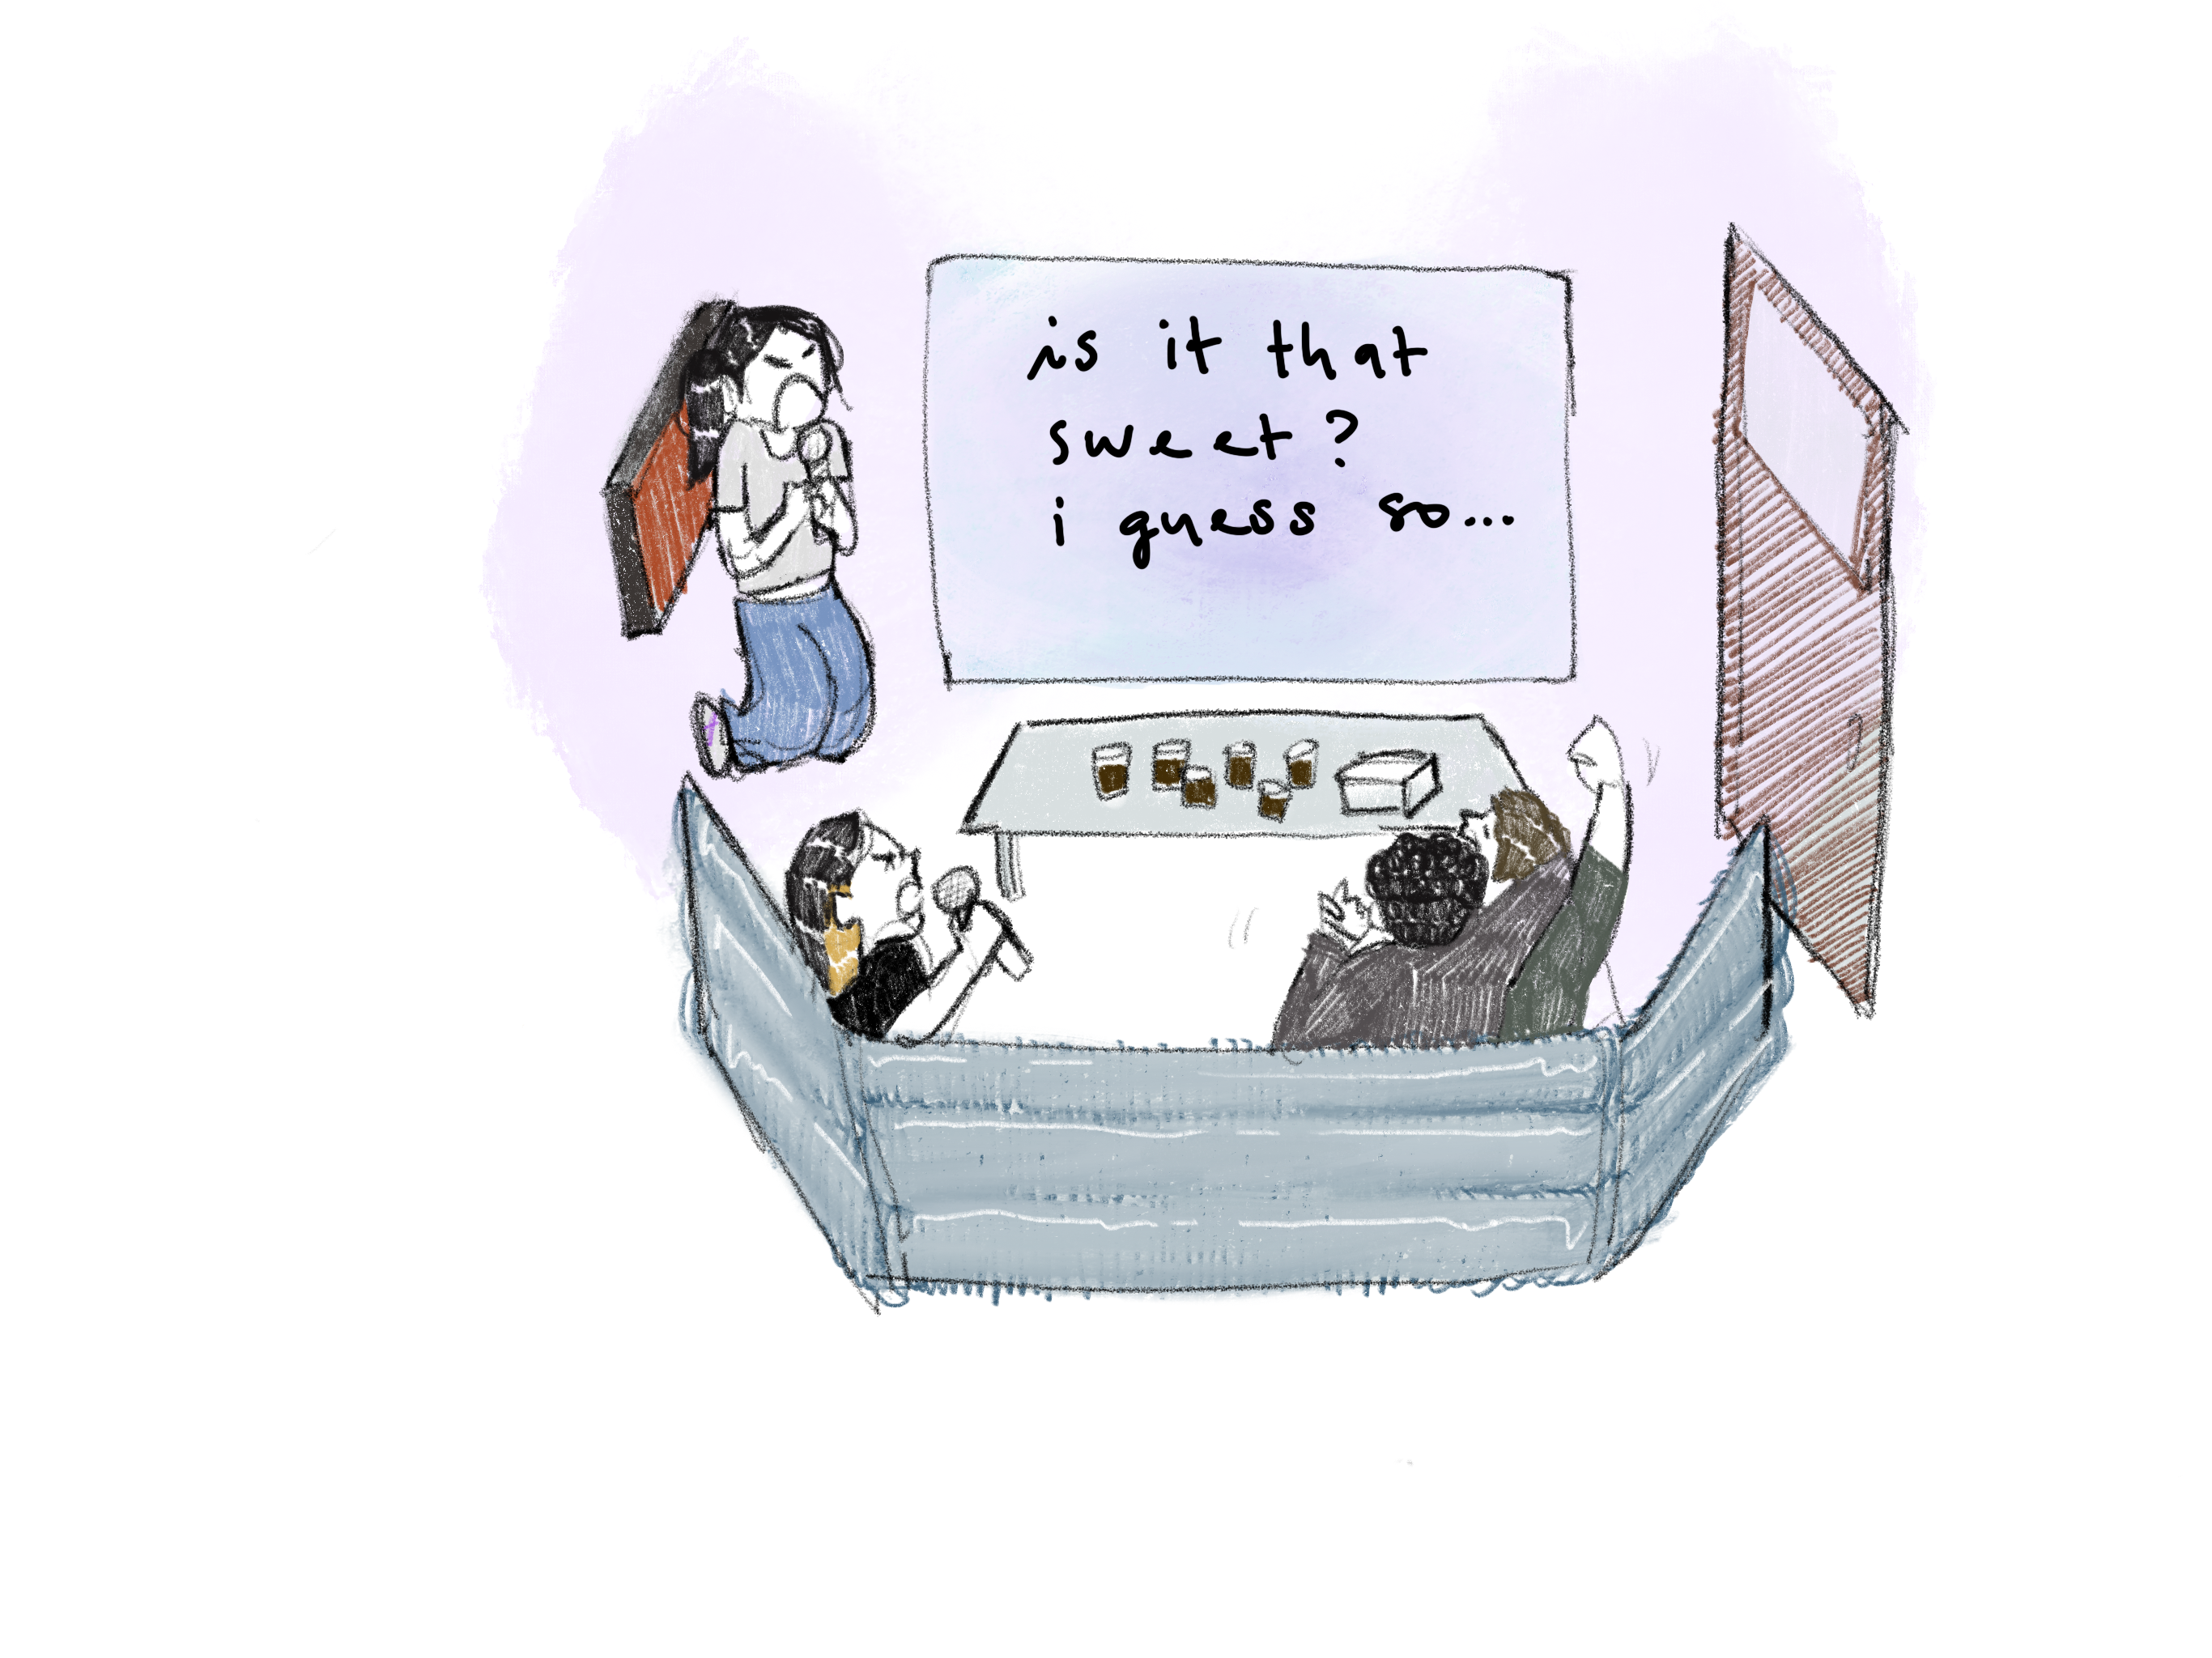 is it that
sweet?
i guess so...